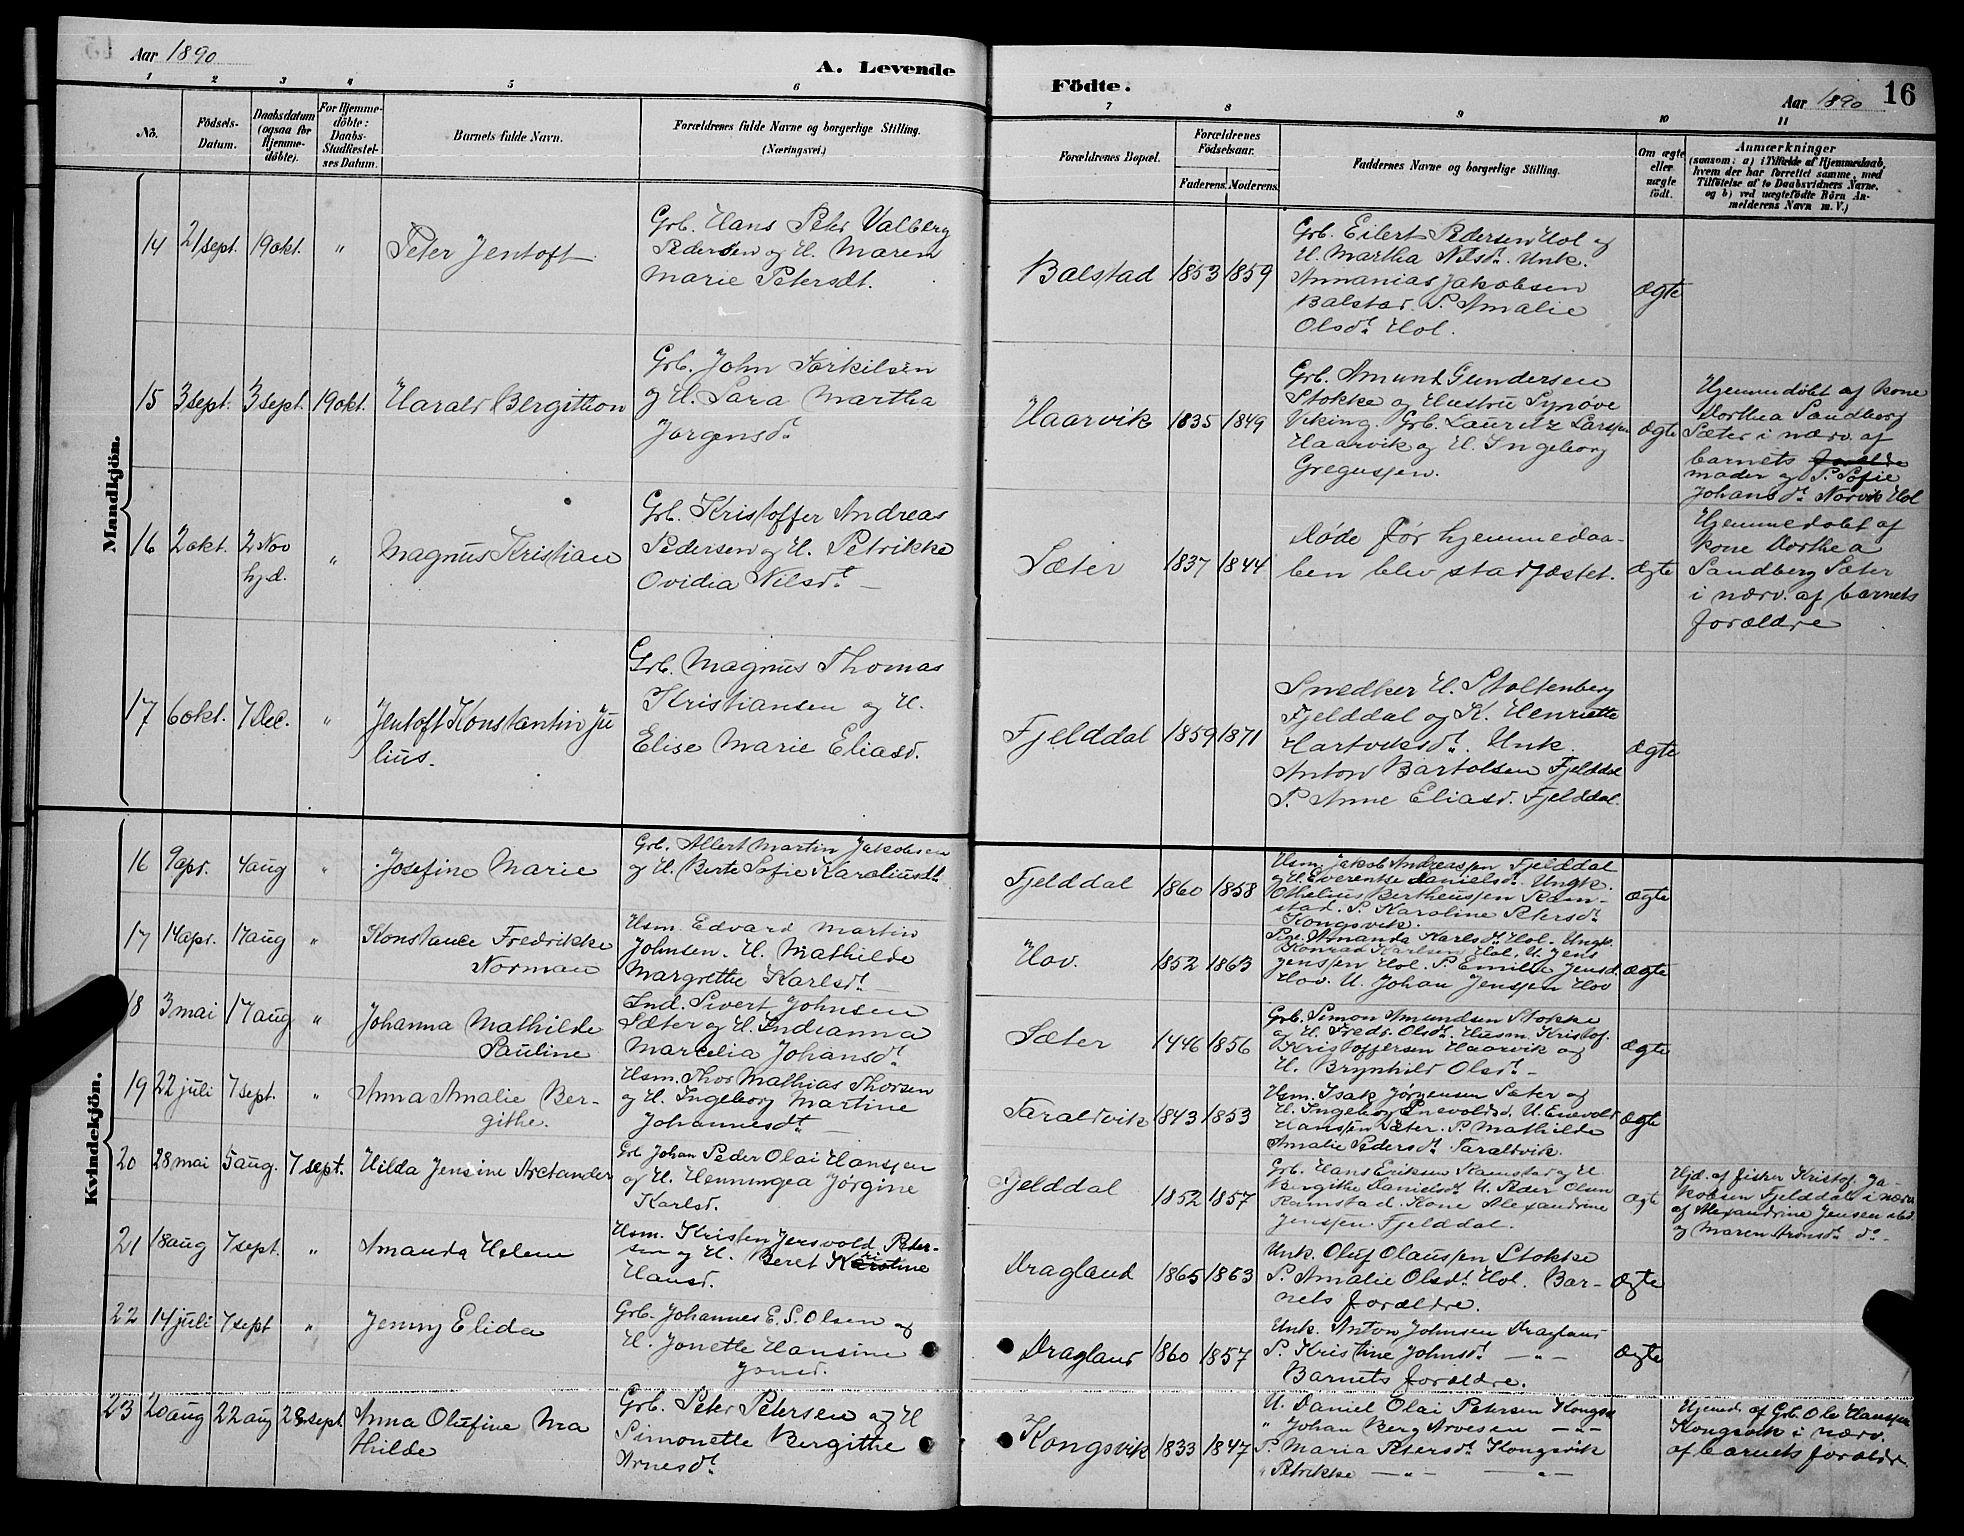 Aar 1890
A. Levende
Födte.
Aar 1890
16
1 2 3 4 5 6 7 8 9 10 11
Nö.
Födsels-
Datum.
Daabsdatum
(ogsaa for
Hjemme-
döbte).
For Hjemme-
döbte:
Daabs-
Stadfæstel-
ses Datum.
Barnets fulde Navn.
Forældrenes fulde Navne og borgerlige Stilling.
(Næringsvei.)
Forældrenes Bopæl.
Forældrenes
Födselsaar.
Faderens. Moderens.
Faddernes Navne og borgerlige Stilling.
Om ægte
eller
uægte
födt.
Anmærkninger
(saasom: a) i Tilfælde af Hjemmedaab,
hvem der har forrettet samme, med
Tilföielse af to Daabsvidners Navne,
og b) ved uægtefödte Börn An-
melderens Navn m. V.)
Mandkjön.
14 21 sept. 19 okt. "
Peter Jentoft
Grb. Hans Peter Valberg
Pedersen og H. Maren
Marie Petersdt.
Balstad 1853 1859
Grb. Eilert Pedersen Hol og
H. Martha Nilsdt. Unk.
Annanias Jakobsen
Balstad. P. Amalie
Olsdt. Hol.
ægte
15 3 sept. 3 sept. 19 okt.
Harald Bergithon
Grb. John Torkilsen
og H. Sara Martha
Jørgensdt.
Haarvik 1835 1849
Grb. Amund Gundersen
Stokke og Hustru Synøve
Viking. Grb. Lauritz Larssen
Haarvik og H. Ingeborg
Gregussen.
ægte
Hjemmedøbt af kone
Dorthea Sandberg
Sæter i nærv. af
barnets forældre
moder og P. Sofie
Johansdt. Norvik Hol
16 2 okt. 2 Nov
hjd. "
Magnus Kristian
Grb. Kristoffer Andreas
Pedersen og H. Petrikke
Ovidia Nilsdt. —
Sæter 1837 1844
Døde før hjemmedaa-
ben blev stadfæstet.
ægte
Hjemmedøbt af
kone Dorthea
Sandberg Sæter
i nærv. af barnets
forældre
17 6 okt. 7 Dec. "
Jentoft Konstantin Ju
lius.
Grb. Magnus Thomas
Kristiansen og H.
Elise Marie Eliasd.
Fjelddal 1859 1871
Snedker H. Stoltenberg
Fjelddal og K. Henriette
Hartviksdt. Unk.
Anton Bartolsen Fjelddal
P. Anne Eliasd. Fjelddal.
ægte
Kvindekjön.
16 9 apr. 4 aug "
Josefine Marie
Grb. Albert Martin Jakobsen
og H. Berte Sofie Karoliusdt.
Fjelddal 1860 1858
Husm. Jakob Andreassen Fjelddal
og H. Everentse Danielsdt. Ungk.
Othelius Bertheussen Ram-
stad. P. Karoline Petersdt.
Kongsvik.
ægte
17 14 apr. 17 aug "
Konstance Fredrikke
Norman
Husm. Edvard Martin
Johnsen. H. Mathilde
Margrethe Karlsdt. —
Hov. 1852 1863
Pige Amanda Karlsdt. Hol. Ungk.
Konrad Karlsen Hol, U. Jens
Jenssen Hol. P. Emilie Jensd.
Hov. U. Johan Jenssen Hov
ægte
18 3 mai 17 aug "
Johanna Mathilde
Pauline
Ind. Sivert Johnsen
Sæter og H. Indianna
Marcelia Johansdt.
Sæter 1446 1856
Grb. Simon Amundsen Stokke
og H. Fredr. Olsdt. Husm. Kristof.
Kristoffersen Haarvik og
H. Brynhild Olsdt. —
ægte
19 22 juli 7 sept. "
Anna Amalie Ber-
githe.
Husm. Thor Mathias Thorsen
og H. Ingeborg Martine
Johannesdt. —
Taraldvik 1843 1853
Husm. Isak Jørgensen Sæter og
H. Ingeborg Enevoldsd. U. Enevold
Hanssen Sæter. P. Mathilde
Amalie Pedersdt. Taraldvik.
ægte
20 28 mai 5 aug. 7 sept.
Hilda Jensine Arctander
Grb. Johan Peder Olai Hanssen
og H. Henningea Jørgine
Karlsd.
Fjelddal 1852 1857
Grb. Hans Eriksen Ramstad og H.
Bergithe Danielsdt. U. Peder Olsen
Ramstad. Kone Alexandrine
Jenssen. Fjelddal.
ægte
Hjd. af fisker Kristof. Ja-
kobsen Fjelddal i nærv.
af Alexandrine Jensen
og Maren Aronsdt. do.
21 18 aug 7 sept. "
Amanda Helene
Husm. Kristen Jersvold Peder-
sen og H. Beret Karoline
Hansd.
Dragland 1865 1863
Unk. Oluf Olaussen Stokke
P. Amalie Olsdt. Hol. Bar-
nets forældre.
ægte
22 14 juli 7 sept "
Jenny Elida
Grb. Johannes E. S. Olsen og
H. Jonette Hansine
Jonsd.
Dragland 1860 1857
Unk. Anton Johnsen Dragland
P. Kristine Johnsdt. — " —
Barnets forældre.
ægte
23 20 aug 22 aug 28 sept.
Anna Olufine Ma
thilde
Grb. Peter Petersen og H
Simonette Bergithe
Arnesdt.
Kongsvik 1833 1847
U. Daniel Olai Petersen Kongsv
" Johan Berg Arvesen — " —
P. Maria Petersdt. Kongsvik
" Petrikke — " — — " —
Hjemd. af Grb. Ole Hanssen
Kongsvik i nærv.
af barnets forældre.